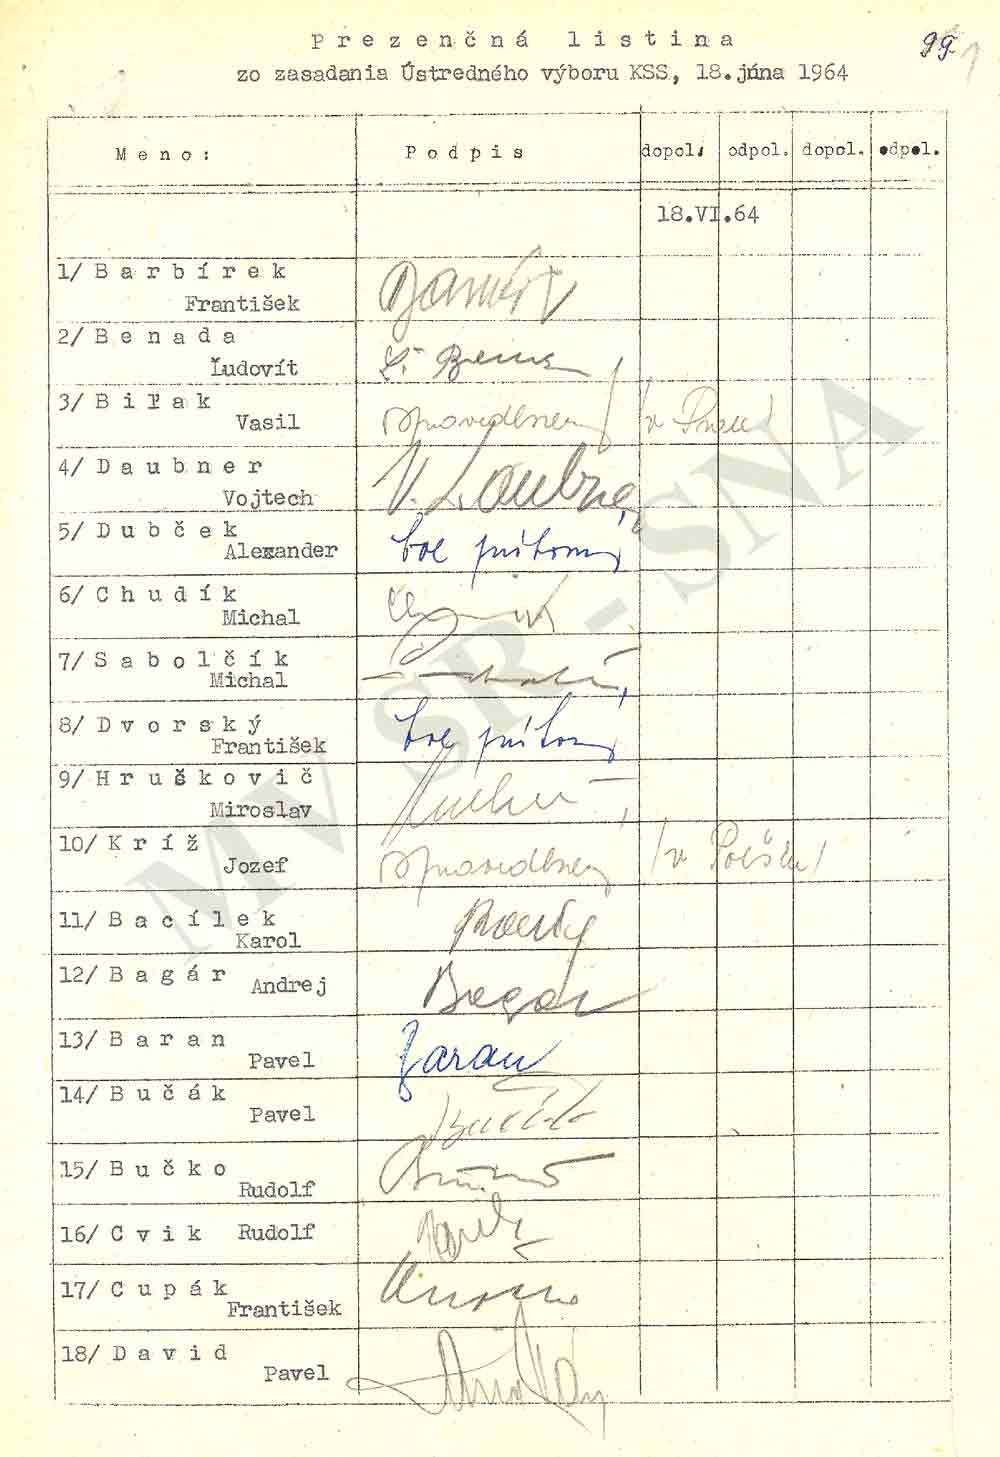 P r e z e n č n á   l i s t i n a
99.
zo zasadania Ústredného výboru KSS, 18.júna 1964
M e n o : P o d p i s dopol. odpol. dopol. odpol.
18.VI.64
1/ B a r b í r e k
František
2/ B e n a d a
Ľudovít
3/ B i ľ a k
Vasil ospravedlnený /v Prahe/
4/ D a u b n e r
Vojtech V. Daubner
5/ D u b č e k
Alexander bol prítomný
6/ C h u d í k
Michal
7/ S a b o l č í k
Michal
8/ D v o r s k ý
František bol prítomný
9/ H r u š k o v i č
Miroslav
10/ K r í ž
Jozef ospravedlnený /v Poľsku/
11/ B a c í l e k
Karol
12/ B a g á r Andrej Bagár
13/ B a r a n
Pavel Baran
14/ B u č á k
Pavel
15/ B u č k o
Rudolf
16/ C v i k Rudolf
17/ C u p á k
František
18/ D a v i d
Pavel
MV SR - SNA